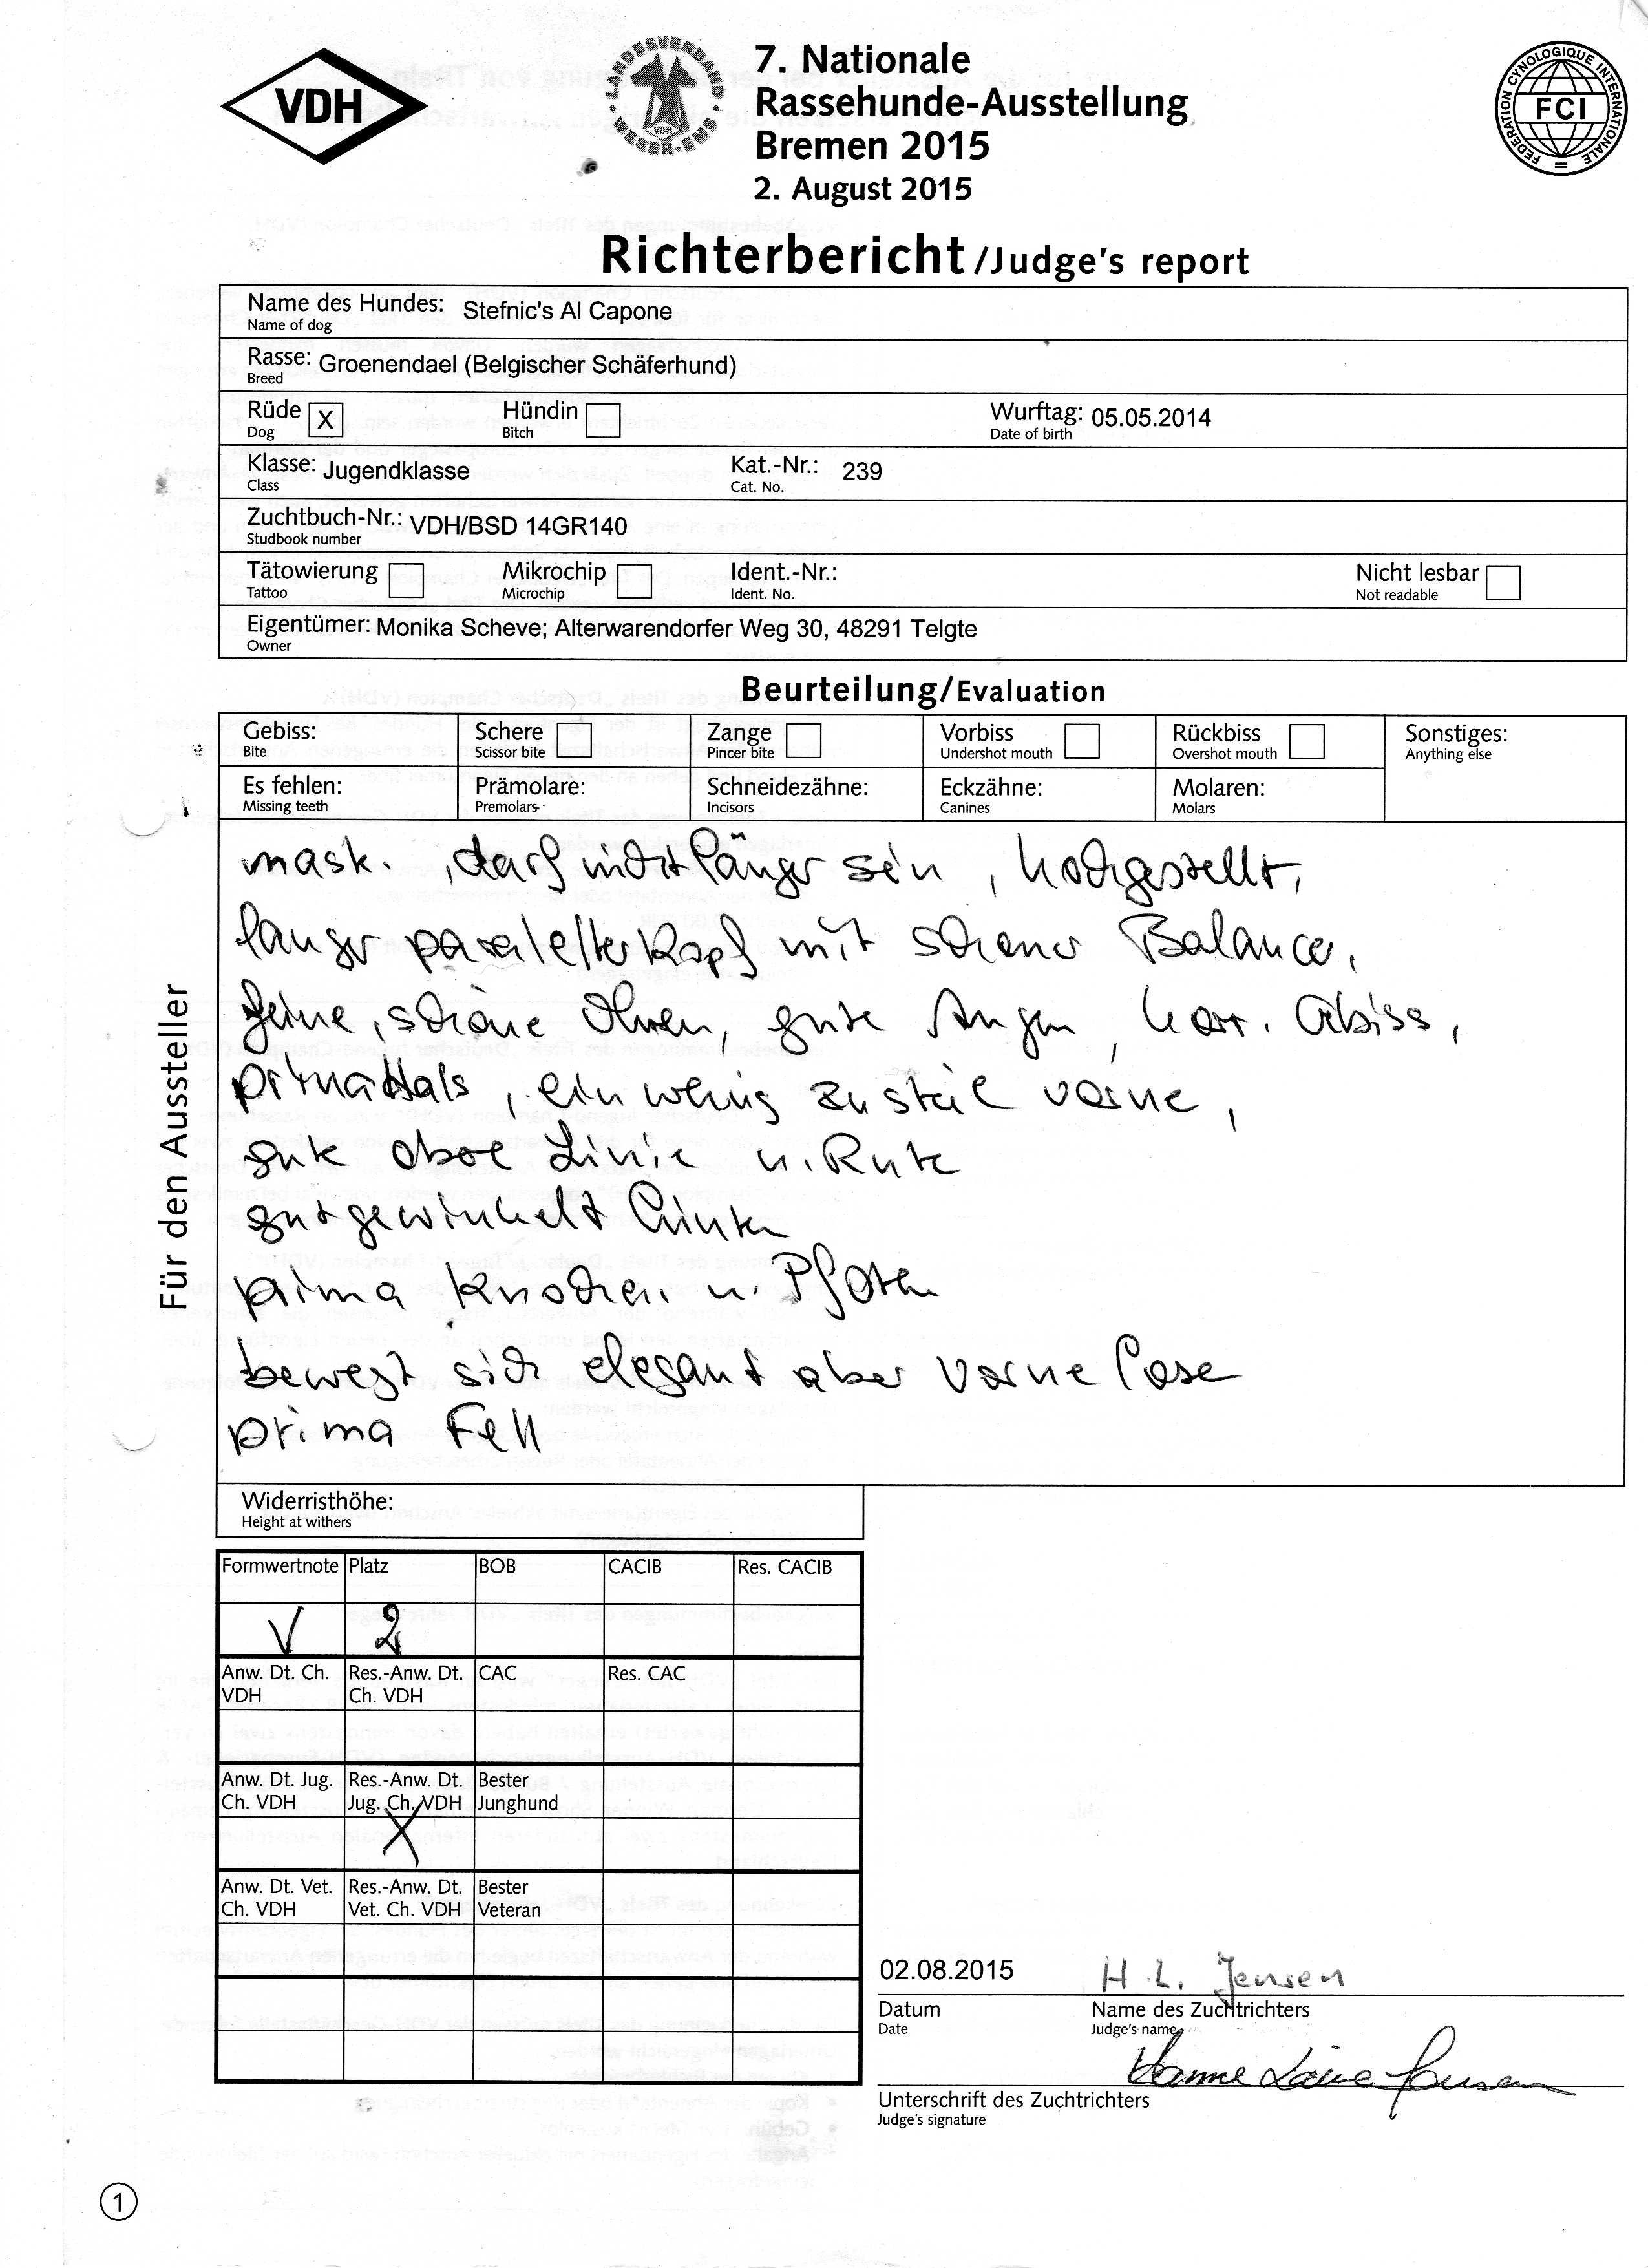 VDH
LANDESVERBAND WESER-EMS
VDH
7. Nationale
Rassehunde-Ausstellung
Bremen 2015
2. August 2015
FEDERATION CYNOLOGIQUE INTERNATIONALE
FCI
Richterbericht/Judge's report
Name des Hundes: Stefnic's Al Capone
Name of dog
Rasse: Groenendael (Belgischer Schäferhund)
Breed
Rüde X Hündin Wurftag: 05.05.2014
Dog Bitch Date of birth
Klasse: Jugendklasse Kat.-Nr.: 239
Class Cat. No.
Zuchtbuch-Nr.: VDH/BSD 14GR140
Studbook number
Tätowierung Mikrochip Ident.-Nr.: Nicht lesbar
Tattoo Microchip Ident. No. Not readable
Eigentümer: Monika Scheve; Alterwarendorfer Weg 30, 48291 Telgte
Owner
Beurteilung/Evaluation
Gebiss: Schere Zange Vorbiss Rückbiss Sonstiges:
Bite Scissor bite Pincer bite Undershot mouth Overshot mouth Anything else
Es fehlen: Prämolare: Schneidezähne: Eckzähne: Molaren:
Missing teeth Premolars Incisors Canines Molars
Für den Aussteller
mask. , darf nicht länger sein , hochgestellt,
langer paralleller Kopf mit schöner Balance,
feine, schöne Ohren, gute Augen, korr. Gbiss,
prima Hals , ein wenig zu steil vorne ,
gute obere Linie u. Rute
gut gewinkelt hinten
prima Knochen u. Pfoten
bewegt sich elegant aber vorne lose
prima Fell
Widerristhöhe:
Height at withers
Formwertnote Platz BOB CACIB Res. CACIB
V 2
Anw. Dt. Ch. VDH Res.-Anw. Dt. Ch. VDH CAC Res. CAC
Anw. Dt. Jug. Ch. VDH Res.-Anw. Dt. Jug. Ch. VDH Bester Junghund
X
Anw. Dt. Vet. Ch. VDH Res.-Anw. Dt. Vet. Ch. VDH Bester Veteran
02.08.2015 H. L. Jensen
Datum Name des Zuchtrichters
Date Judge's name
Hanne Laine Jensen
Unterschrift des Zuchtrichters
Judge's signature
1